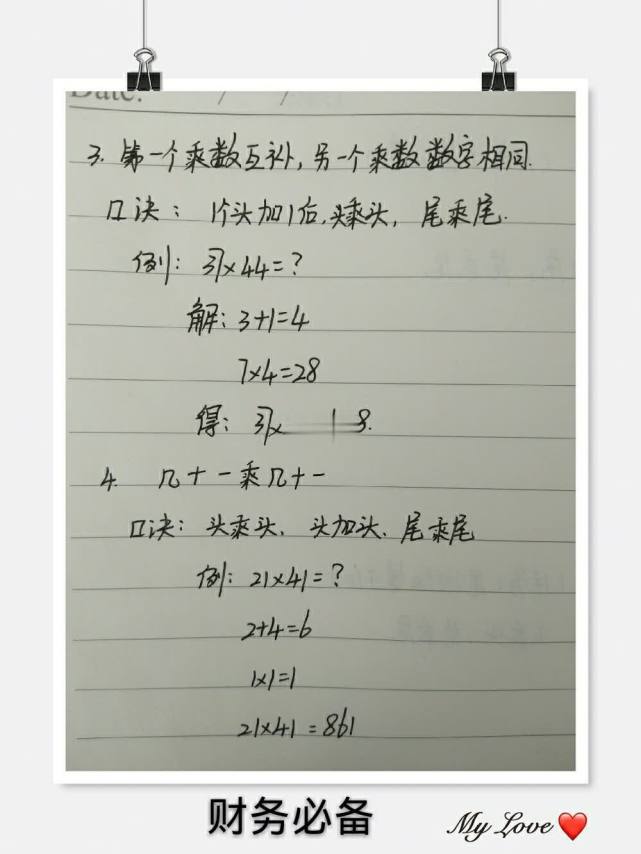 Date: / /
3. 第一个乘数互补,另一个乘数数字相同.
口诀: 1个头加1后,头乘头, 尾乘尾.
例: 37×44=?
解: 3+1=4
7×4=28
得: 37× 1 8.
4. 几十一乘几十一
口诀: 头乘头、头加头、尾乘尾
例: 21×41=?
2+4=6
1×1=1
21×41=861
财务必备
My Love❤️